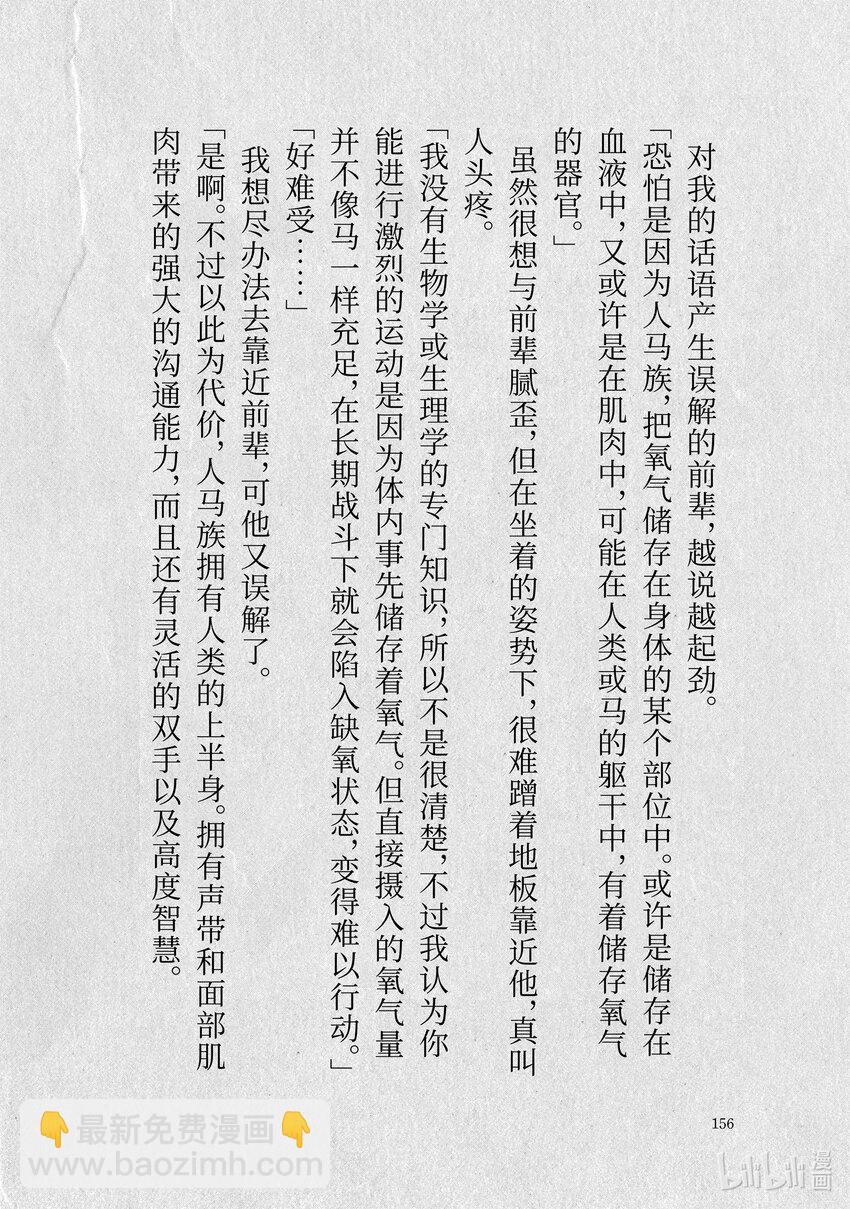 对我的话语产生误解的前辈，越说越起劲。
「恐怕是因为人马族，把氧气储存在身体的某个部位中。或许是储存在
血液中，又或许是在肌肉中，可能在人类或马的躯干中，有着储存氧气
的器官。」
虽然很想与前辈腻歪，但在坐着的姿势下，很难蹭着地板靠近他，真叫
人头疼。
「我没有生物学或生理学的专门知识，所以不是很清楚，不过我认为你
能进行激烈的运动是因为体内事先储存着氧气。但直接摄入的氧气量
并不像马一样充足，在长期战斗下就会陷入缺氧状态，变得难以行动。」
「好难受……」
我想尽办法去靠近前辈，可他又误解了。
「是啊。不过以此为代价，人马族拥有人类的上半身。拥有声带和面部肌
肉带来的强大的沟通能力，而且还有灵活的双手以及高度智慧。
156
👇最新免费漫画👇
www.baozimh.com
bilibili漫画